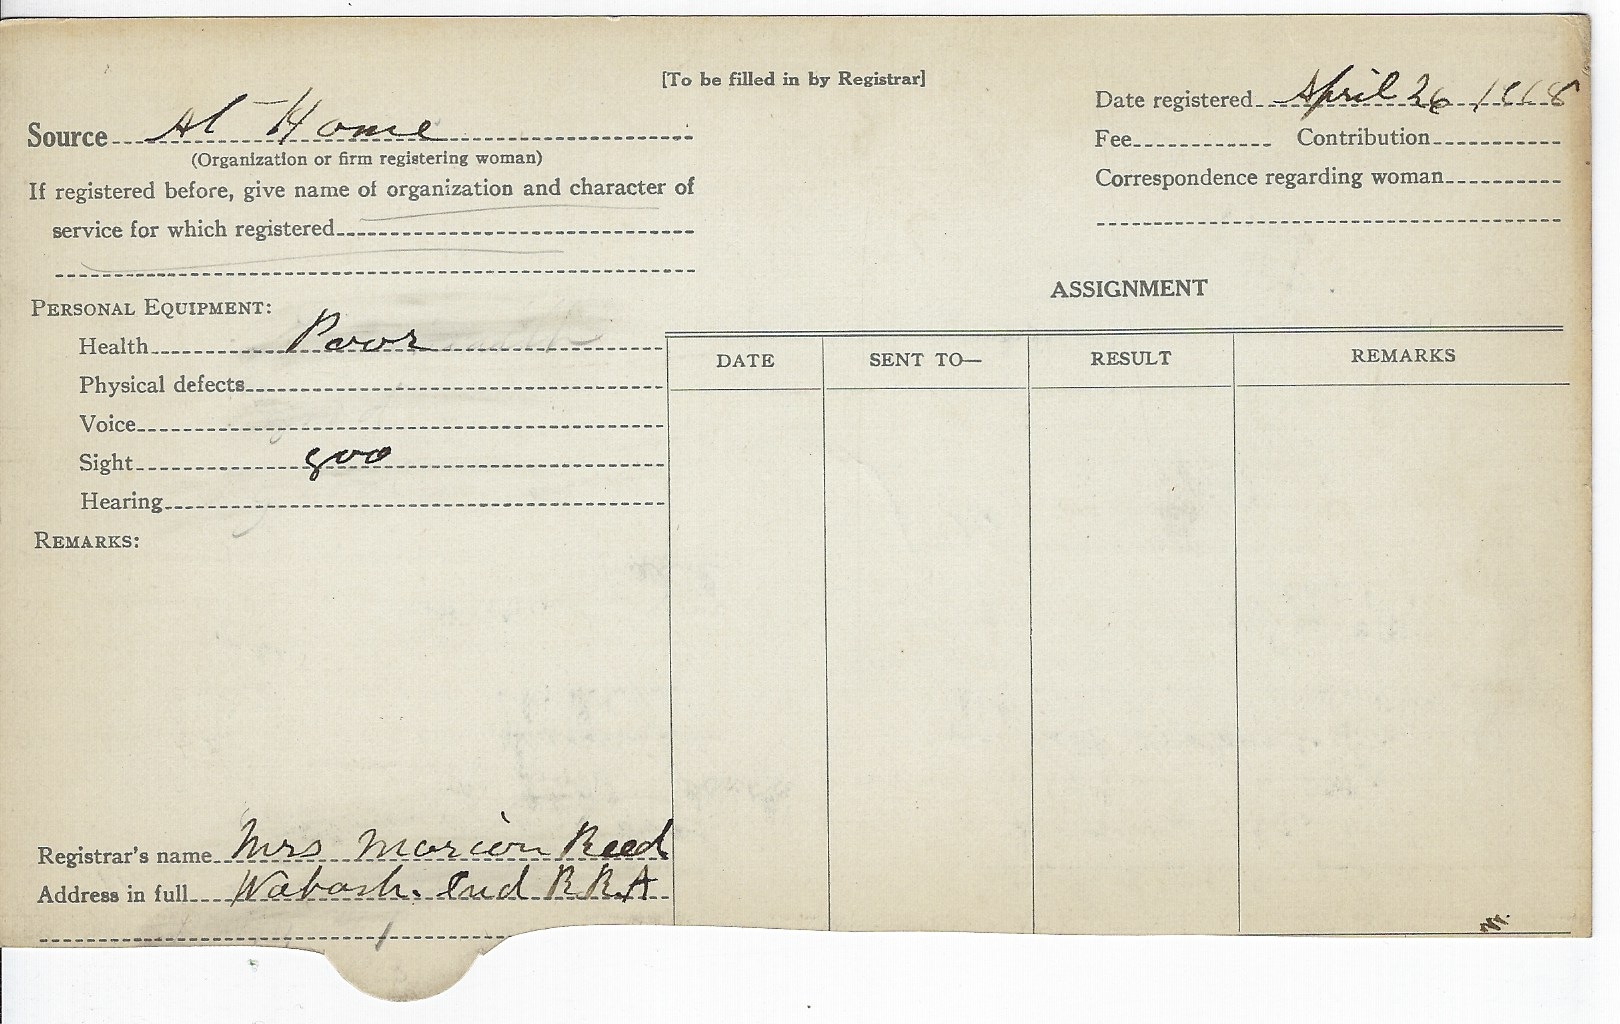 [To be filled in by Registrar]
Source At Home
(Organization or firm registering woman)
If registered before, give name of organization and character of
service for which registered
Date registered April 26, 1918
Fee Contribution
Correspondence regarding woman
PERSONAL EQUIPMENT:
Health Poor
Physical defects
Voice
Sight goo
Hearing
REMARKS:
Registrar's name Mrs Marion Reed
Address in full Wabash. Ind R.R.A
ASSIGNMENT
DATE SENT TO— RESULT REMARKS